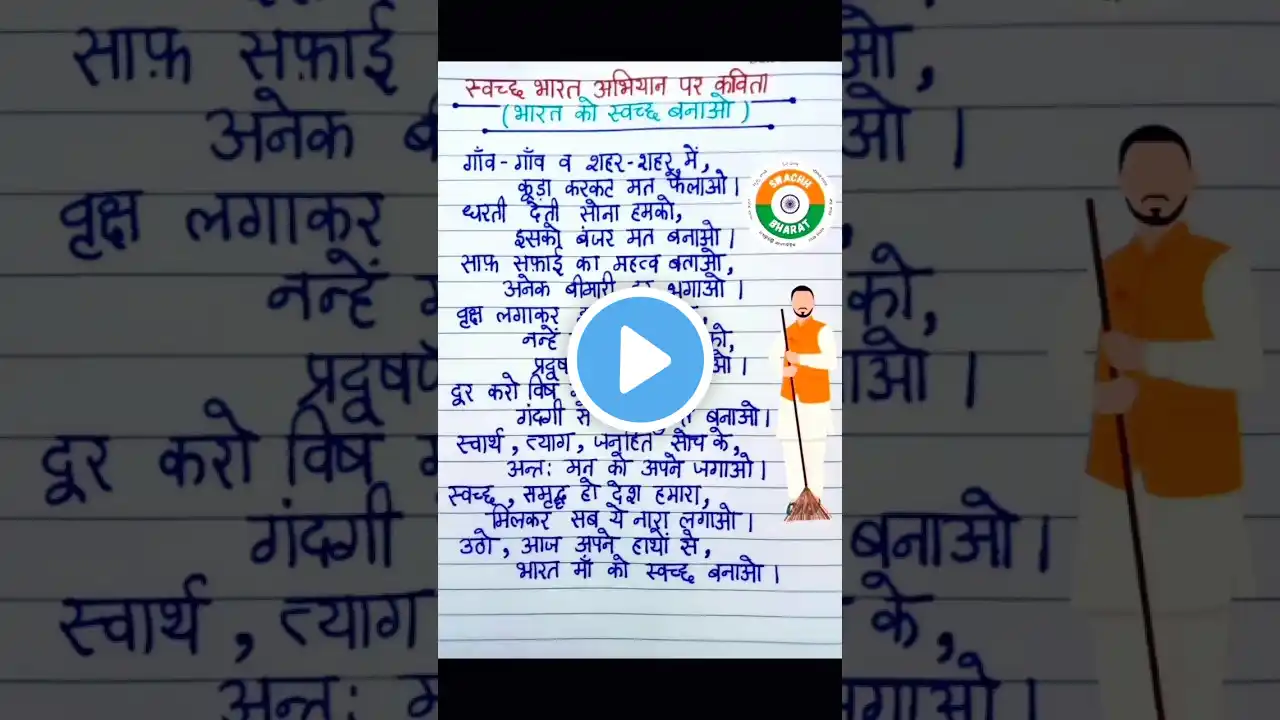 स्वच्छ भारत अभियान पर कविता
(भारत को स्वच्छ बनाओ)
गाँव-गाँव व शहर-शहर में,
कूड़ा करकट मत फैलाओ।
धरती देती सोना हमको,
इसको बंजर मत बनाओ।
साफ़ सफ़ाई का महत्व बताओ,
अनेक बीमारी भगाओ।
वृक्ष लगाकर
नन्हें को,
दूर करो विष
गंदगी से बनाओ।
स्वार्थ, त्याग, जनहित सोच के,
अन्त: मन को अपने जगाओ।
स्वच्छ, समृद्ध हो देश हमारा,
मिलकर सब ये नारा लगाओ।
उठो, आज अपने हाथों से,
भारत माँ को स्वच्छ बनाओ।
SWACHH
BHARAT